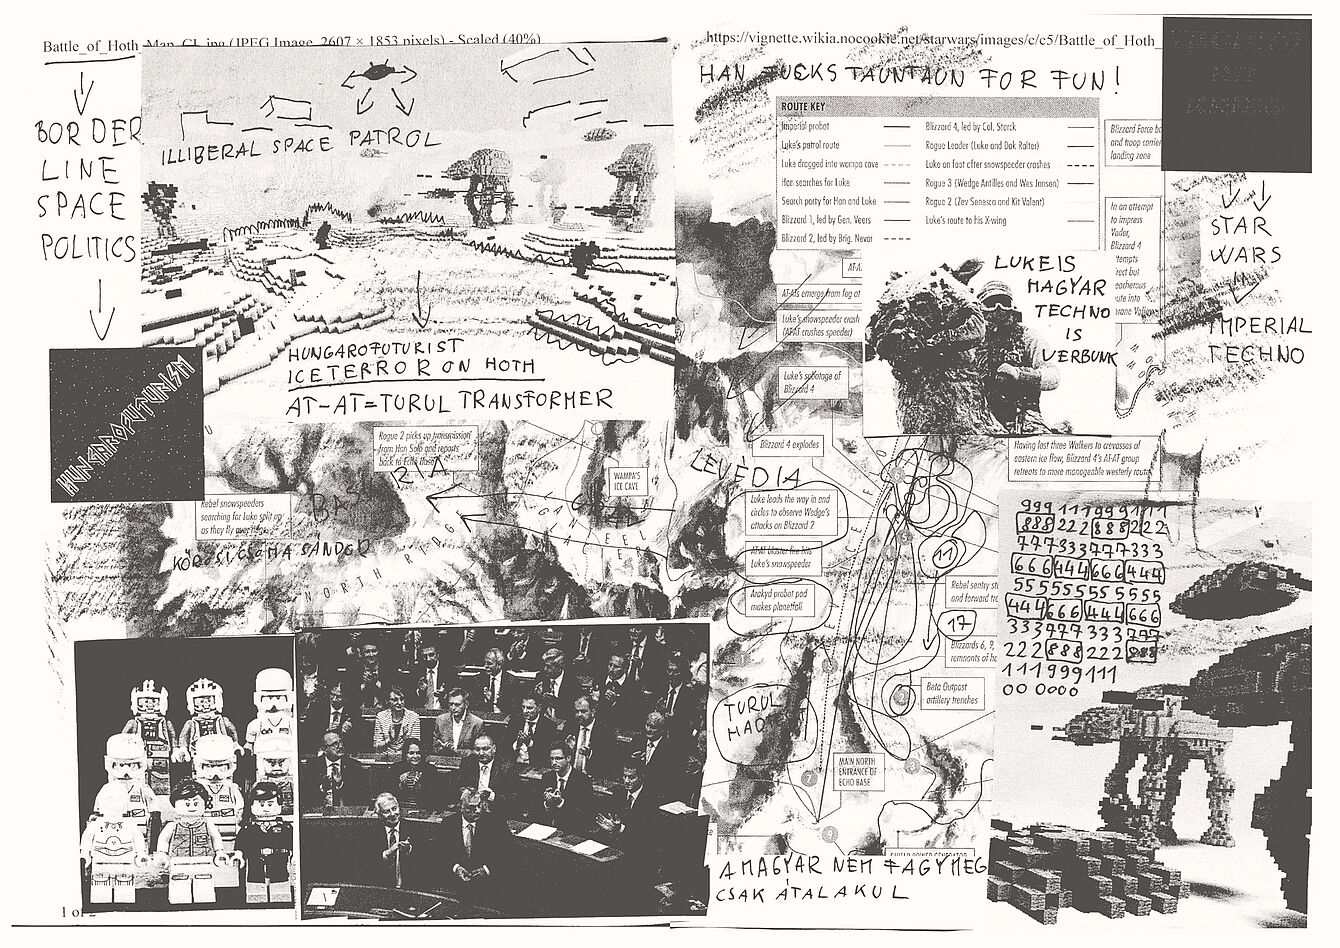 Battle_of_Hoth_Map_CL.jpg (JPEG Image, 2607 × 1853 pixels) - Scaled (40%)
BORDER
LINE
SPACE
POLITICS
ILLIBERAL SPACE PATROL
HUNGAROFUTURIST
ICETERROR ON HOTH
AT-AT=TURUL TRANSFORMER
HUNGAROFUTURISM
Rogue 2 picks up transmission
from Han Solo and reports
back to Echo Base
Rebel snowspeeders
searching for Luke split up
as they fly over
KŐRÖSI CSOMA SÁNDOR
NORTH RIDGE
WAMPA'S
ICE CAVE
1 of 2
https://vignette.wikia.nocookie.net/starwars/images/c/c5/Battle_of_Hoth_
HAN FUCKS TAUNTAUN FOR FUN!
ROUTE KEY
Imperial probot
Luke's patrol route
Luke dragged into wampa cave
Han searches for Luke
Search party for Han and Luke
Blizzard 1, led by Gen. Veers
Blizzard 2, led by Brig. Nevar
Blizzard 4, led by Col. Starck
Rogue Leader (Luke and Dak Ralter)
Luke on foot after snowspeeder crashes
Rogue 3 (Wedge Antilles and Wes Janson)
Rogue 2 (Zev Senesca and Kit Valent)
Luke's route to his X-wing
Blizzard Force
and troop carrier
landing zone
In an attempt
to impress
Vader,
Blizzard 4
STAR
WARS
IMPERIAL
TECHNO
LUKE IS
MAGYAR
TECHNO
IS
VERBUNK
AT-ATs emerge from fog at
Luke's snowspeeder crash
(AT-AT crushes speeder)
Luke's sabotage of
Blizzard 4
Blizzard 4 explodes
LEVEDIA
Luke leads the way in and
circles to observe Wedge's
attacks on Blizzard 2
AT-AT blaster fire hits
Luke's snowspeeder
Arakyd probot pod
makes planetfall
Having lost three Walkers to crevasses of
eastern ice flow, Blizzard 4's AT-AT group
retreats to more manageable westerly route
11
Rebel sentry
and forward
17
Blizzards 6, 9,
remnants of
Beta Outpost
artillery trenches
TURUL
MAIN NORTH
ENTRANCE OF
ECHO BASE
SHIELD POWER GENERATOR
A MAGYAR NEM FAGY MEG
CSAK ÁTALAKUL
999111999111
888222888222
777333777333
666444666444
555555555555
444666444666
333777333777
222888222888
111999111
00 0000